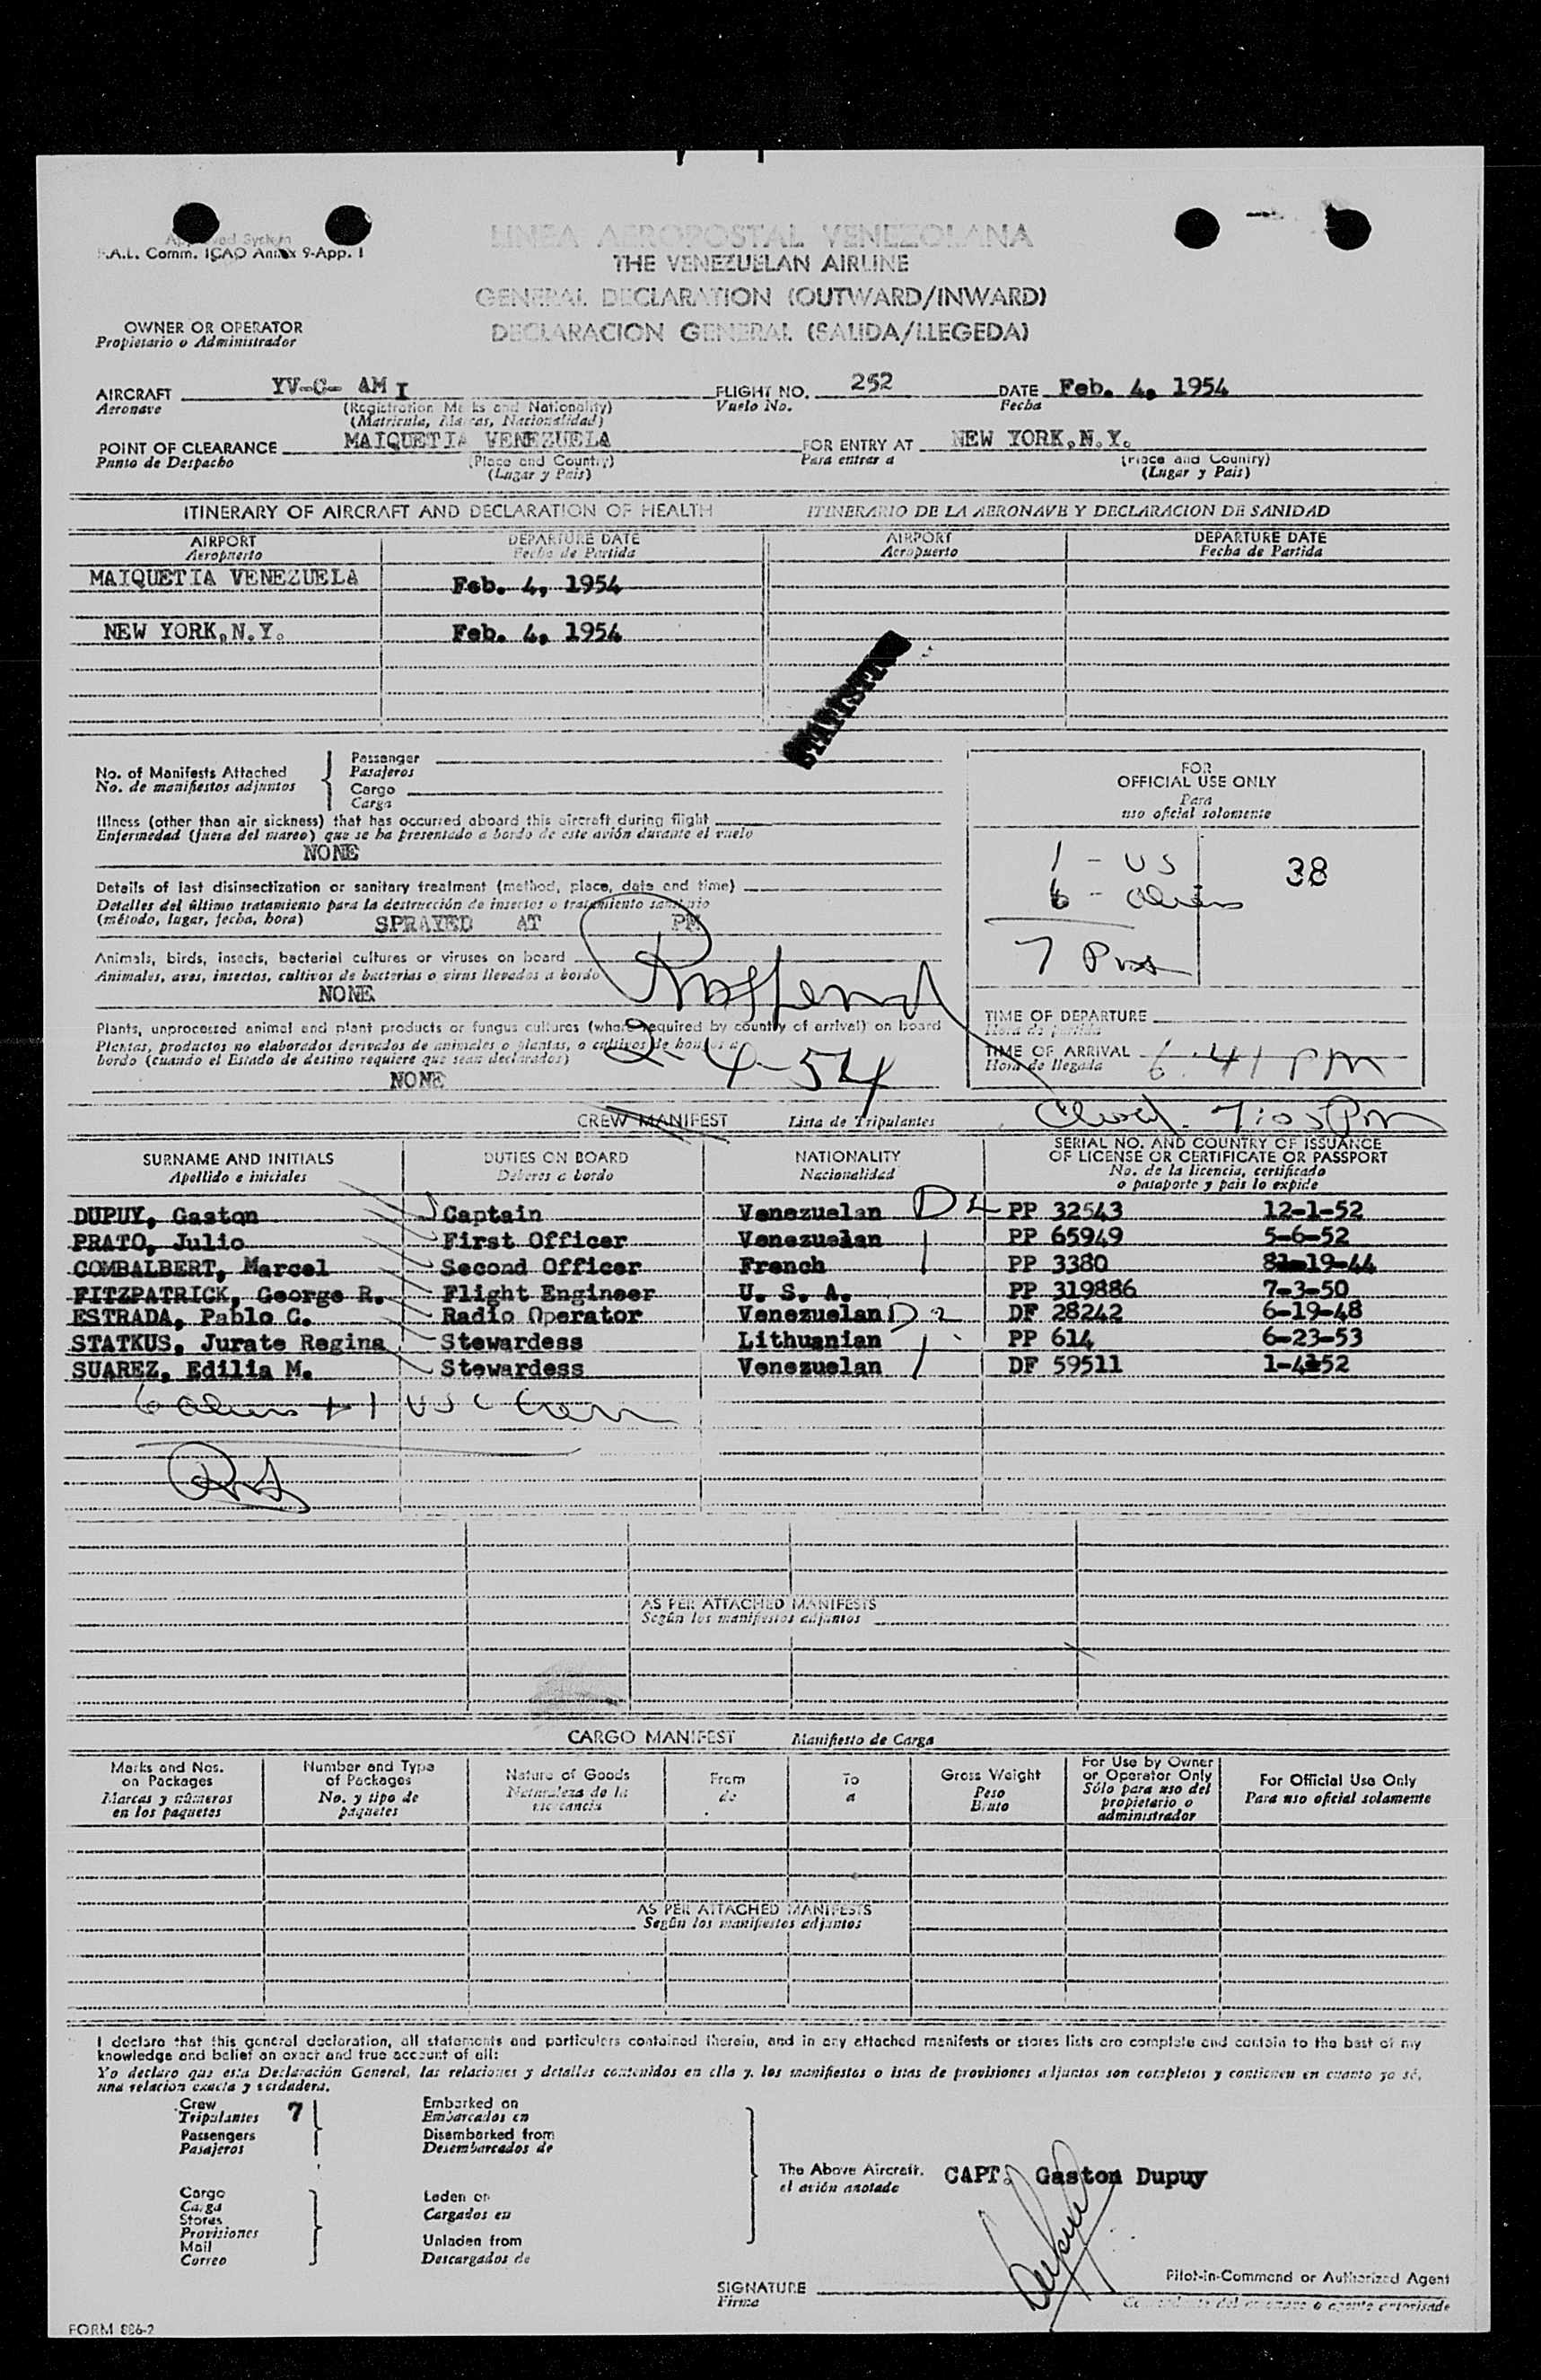 Approved System
F.A.L. Comm. ICAO Annex 9-App. I
LINEA AEROPOSTAL VENEZOLANA
THE VENEZUELAN AIRLINE
GENERAL DECLARATION (OUTWARD/INWARD)
DECLARACION GENERAL (SALIDA/LLEGEDA)
OWNER OR OPERATOR
Propietario o Administrador
AIRCRAFT YV-C- AM I FLIGHT NO. 252 DATE Feb. 4, 1954
Aeronave (Registration Marks and Nationality) Vuelo No. Fecha
(Matricula, Marcas, Nacionalidad)
POINT OF CLEARANCE MAIQUETIA VENEZUELA FOR ENTRY AT NEW YORK,N.Y.
Punto de Despacho (Place and Country) Para entrar a (Place and Country)
(Lugar y Pais) (Lugar y Pais)
ITINERARY OF AIRCRAFT AND DECLARATION OF HEALTH ITINERARIO DE LA AERONAVE Y DECLARACION DE SANIDAD
AIRPORT DEPARTURE DATE AIRPORT DEPARTURE DATE
Aeropuerto Fecha de Partida Aeropuerto Fecha de Partida
MAIQUETIA VENEZUELA Feb. 4, 1954
NEW YORK,N.Y. Feb. 4, 1954
No. of Manifests Attached
No. de manifiestos adjuntos
Passenger
Pasajeros
Cargo
Carga
Illness (other than air sickness) that has occurred aboard this aircraft during flight
Enfermedad (fuera del mareo) que se ha presentado a bordo de este avión durante el vuelo
NONE
Details of last disinsectization or sanitary treatment (method, place, date and time)
Detalles del último tratamiento para la destrucción de insectos o tratamiento sanitario
(método, lugar, fecha, hora) SPRAYED AT PM
Animals, birds, insects, bacterial cultures or viruses on board
Animales, aves, insectos, cultivos de bacterias o virus llevados a bordo
NONE
Plants, unprocessed animal and plant products or fungus cultures (where required by country of arrival) on board
Plantas, productos no elaborados derivados de animales o plantas, o cultivos de hongos a
bordo (cuando el Estado de destino requiere que sean declarados)
NONE
2-4-54
FOR
OFFICIAL USE ONLY
Para
uso oficial solamente
1 - US 38
6 - Aliens
7
TIME OF DEPARTURE
Hora de partida
TIME OF ARRIVAL 6:41 PM
Hora de llegada
7:05 PM
CREW MANIFEST Lista de Tripulantes
SURNAME AND INITIALS DUTIES ON BOARD NATIONALITY SERIAL NO. AND COUNTRY OF ISSUANCE
Apellido e iniciales Deberes a bordo Nacionalidad OF LICENSE OR CERTIFICATE OR PASSPORT
No. de la licencia, certificado
o pasaporte y pais lo expide
DUPUY, Gaston Captain Venezuelan D2 PP 32543 12-1-52
PRATO, Julio First Officer Venezuelan PP 65949 5-6-52
COMBALBERT, Marcel Second Officer French PP 3380 8-19-44
FITZPATRICK, George R. Flight Engineer U. S. A. PP 319886 7-3-50
ESTRADA, Pablo C. Radio Operator Venezuelan D2 DF 28242 6-19-48
STATKUS, Jurate Regina Stewardess Lithuanian PP 614 6-23-53
SUAREZ, Edilia M. Stewardess Venezuelan DF 59511 1-4-52
6 Aliens + 1 USC
AS PER ATTACHED MANIFESTS
Según los manifiestos adjuntos
CARGO MANIFEST Manifiesto de Carga
Marks and Nos. on Packages
Marcas y números en los paquetes
Number and Type of Packages
No. y tipo de paquetes
Nature of Goods
Naturaleza de la mercancía
From
de
To
a
Gross Weight
Peso Bruto
For Use by Owner or Operator Only
Sólo para uso del propietario o administrador
For Official Use Only
Para uso oficial solamente
AS PER ATTACHED MANIFESTS
Según los manifiestos adjuntos
I declare that this general declaration, all statements and particulars contained therein, and in any attached manifests or stores lists are complete and contain to the best of my
knowledge and belief an exact and true account of all:
Yo declaro que esta Declaración General, las relaciones y detalles contenidos en ella y, los manifiestos o listas de provisiones adjuntos son completos y contienen en cuanto yo sé,
una relación exacta y verdadera.
Crew 7
Tripulantes
Passengers
Pasajeros
Embarked on
Embarcados en
Disembarked from
Desembarcados de
Cargo
Carga
Stores
Provisiones
Mail
Correo
Laden on
Cargados en
Unladen from
Descargados de
The Above Aircraft. CAPT. Gaston Dupuy
el avión anotado
SIGNATURE
Firma
Pilot-in-Command or Authorized Agent
FORM 886-2